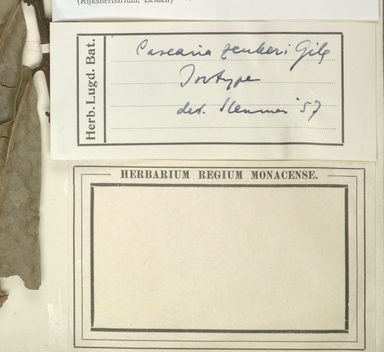 (Rijksherbarium, Leiden)
Herb. Lugd. Bat.
Casearia zenkeri Gilg
Isotype
det. Sleumer '57
HERBARIUM REGIUM MONACENSE.